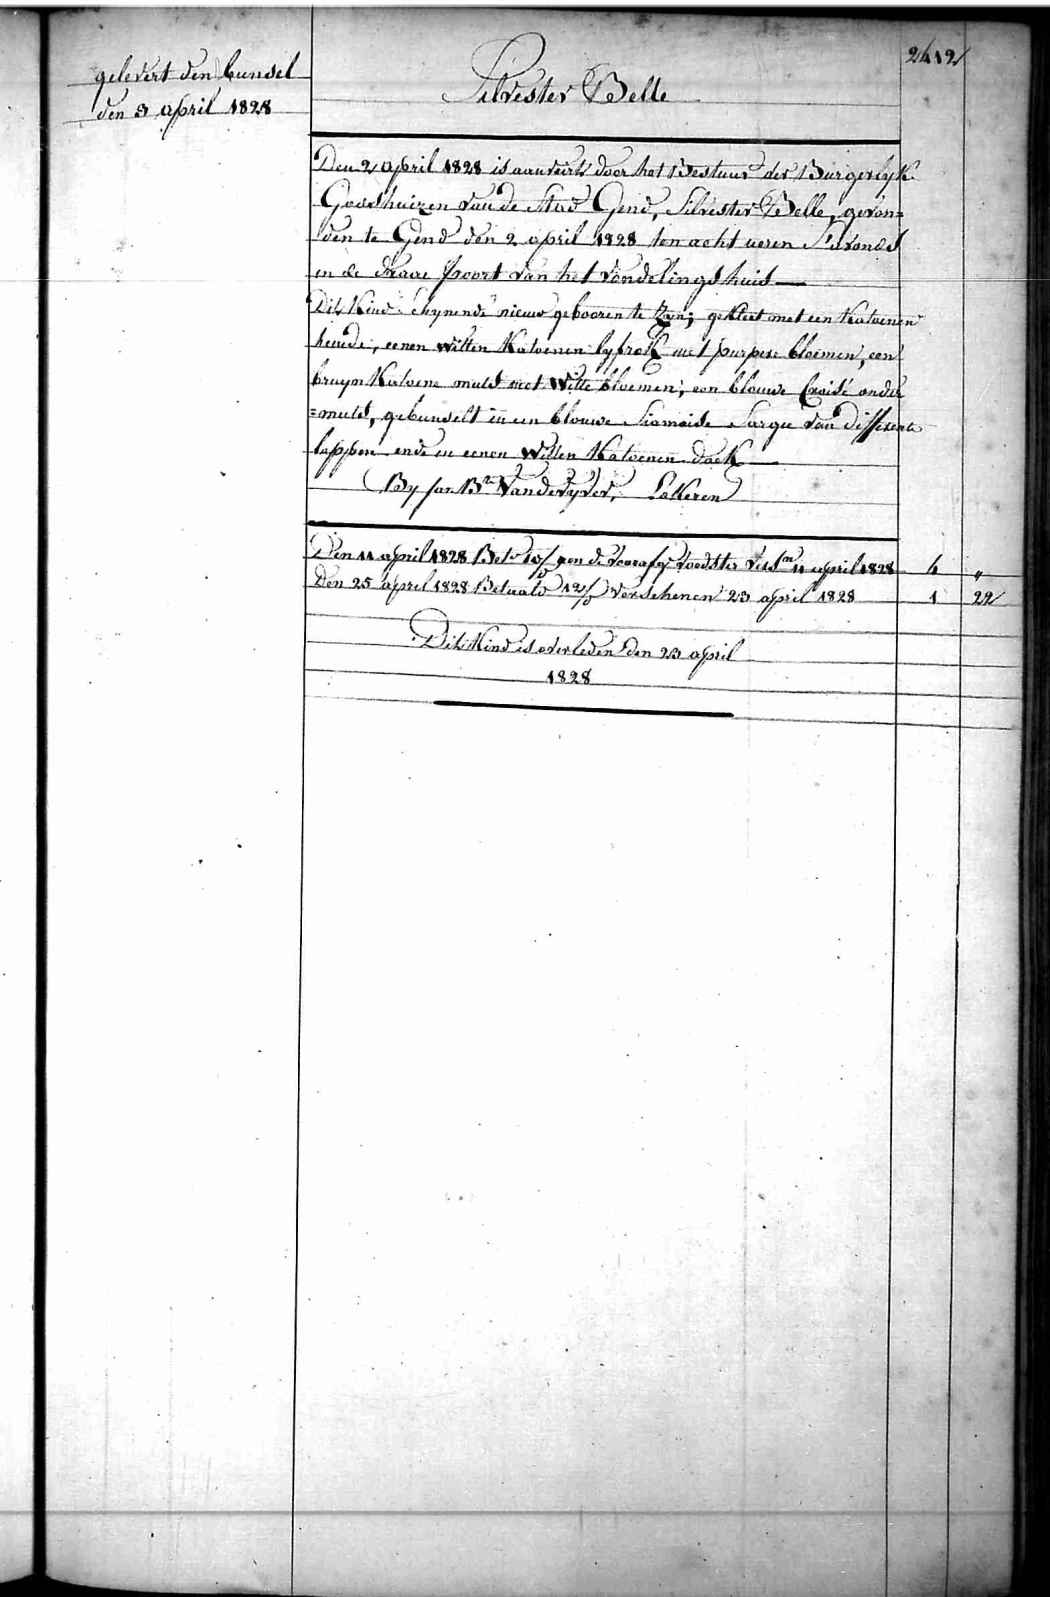 2412
gelevert den bunsel
den 3 april 1828
Silvester Belle
Den 2 april 1828 is aanveirt door het Bestuur der Burgerlyk
Godshuizen van de Stad Gend, Silvester Belle, gevon=
den te Gend den 2 april 1828 ten acht ueren S'avonds
in de draae poort van het vondelingshuis
Dit Kind schynende nieuw gebooren te Zyn; gekleet met een Katoenen
hemde, eenen witten Katoenen lyfrok met purpere bloemen, een
bruyn Katoene muts met Witte bloemen; een blouwe Croisé onder
=muts, gebunselt in een blouwe Siamoise Sargie van differente
lappen ende in eenen Witten Katoenen doek
By Jan Bte Vandevyver, Lokeren
Den 11 april 1828 Bet. aen de voorafg. voedster 11 april 1828 4 "
Den 25 april 1828 Betaald 12/ verschenen 23 april 1828 1 22
Dit Kind is overleden den 23 april
1828